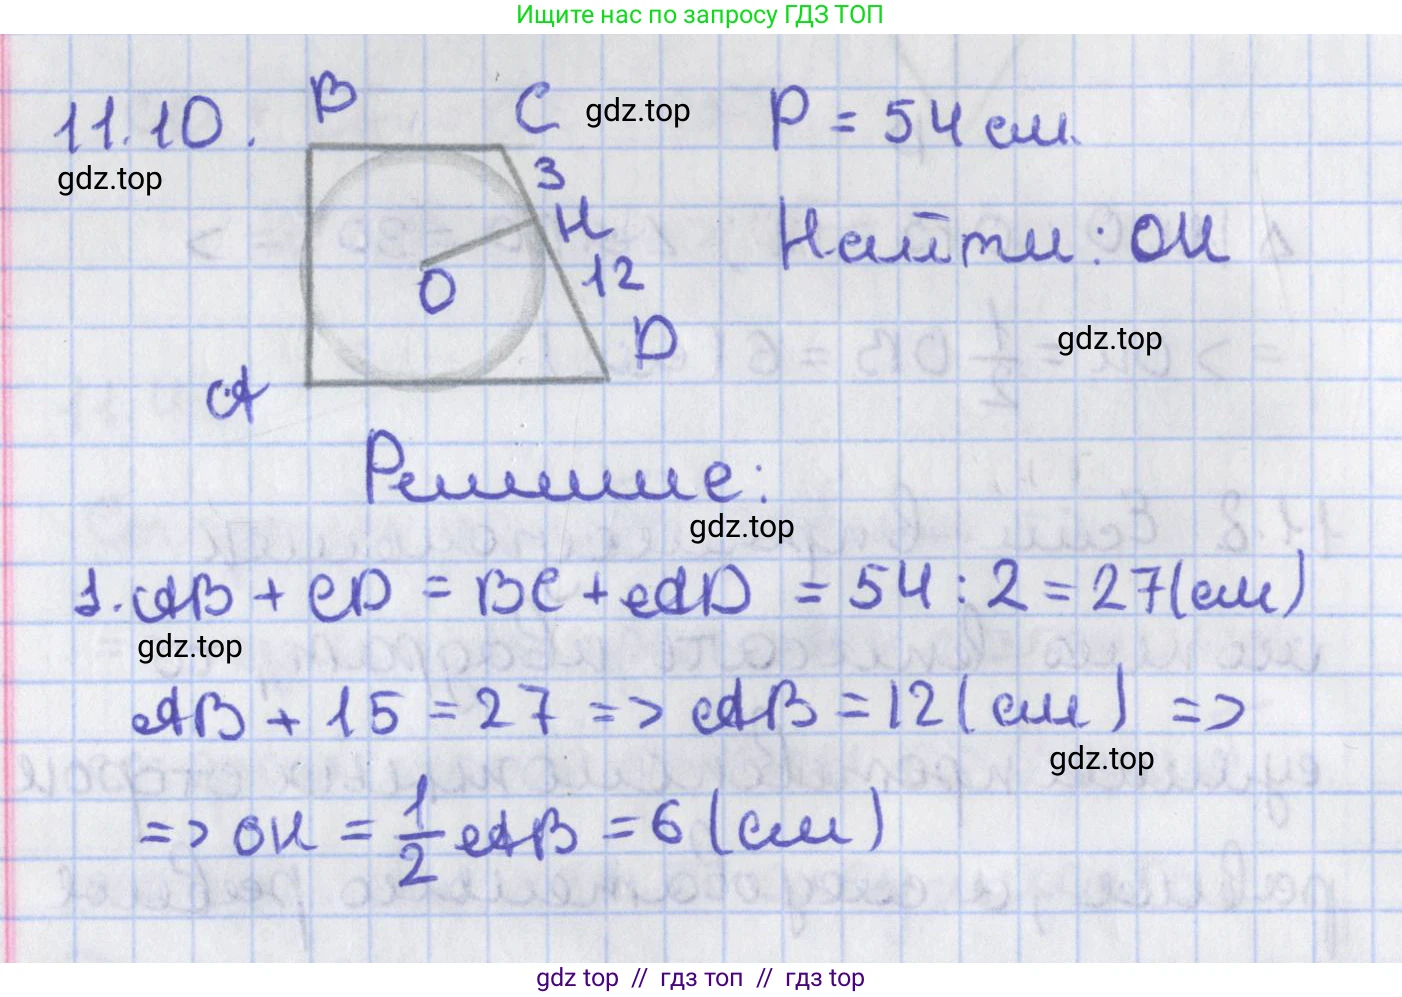 Ищите нас по запросу ГДЗ ТОП
11.10.
B
C
gdz.top
P = 54 см.
gdz.top
3
H
12
O
D
A
Найти: OH
gdz.top
Решение:
gdz.top
1. AB + CD = BC + AD = 54 : 2 = 27 (см)
gdz.top
AB + 15 = 27 => AB = 12 (см) =>
gdz.top
=> OH = 1/2 AB = 6 (см)
gdz top // гдз топ // гдз top